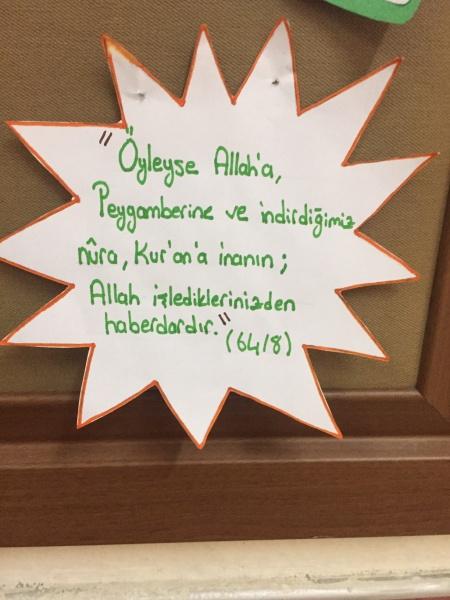 "Öyleyse Allah'a,
Peygamberine ve indirdiğimiz
nûra, Kur'an'a inanın;
Allah işlediklerinizden
haberdardır."
(64/8)